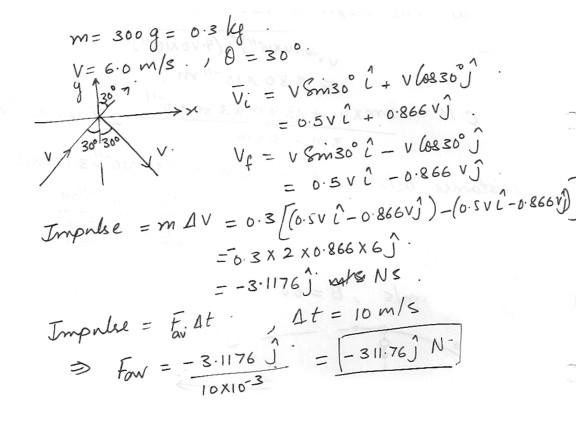 m = 300 g = 0.3 kg.
V = 6.0 m/s. , θ = 30°.
y
30°
x
30° 30°
V
V.
V̄i = V Sin30° î + V Cos30° ĵ
= 0.5 V î + 0.866 V ĵ
Vf = V Sin30° î − V Cos30° ĵ
= 0.5 V î − 0.866 V ĵ
Impulse = m ΔV = 0.3 [(0.5V î − 0.866V ĵ) − (0.5V î − 0.866V ĵ)]
= −0.3 × 2 × 0.866 × 6 ĵ
= −3.1176 ĵ NS.
Impulse = F̄av Δt . , Δt = 10 m/s
⇒ Fav = −3.1176 ĵ / 10×10⁻³ = −311.76 ĵ N